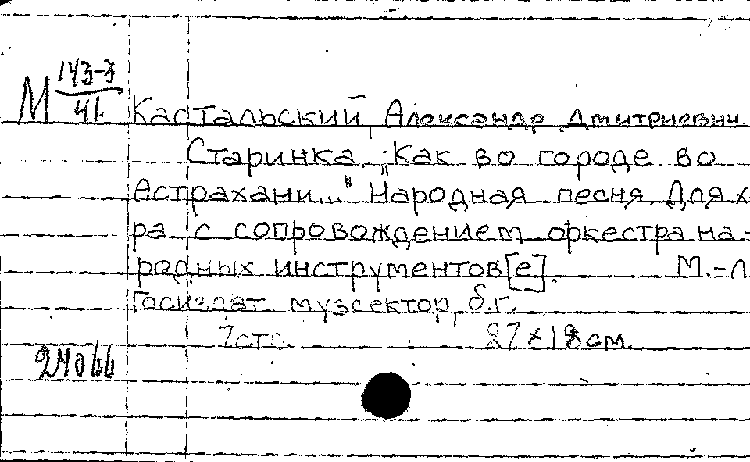 М 143-3/41
Кастальский, Александр Дмитриевич
Старинка „Как во городе во
Астрахани..." Народная песня Для х
ра с сопровождением оркестра на-
родных инструментов[е]. М.-Л
Госиздат. музсектор, б.г.
7стр. 27х18см.
27066